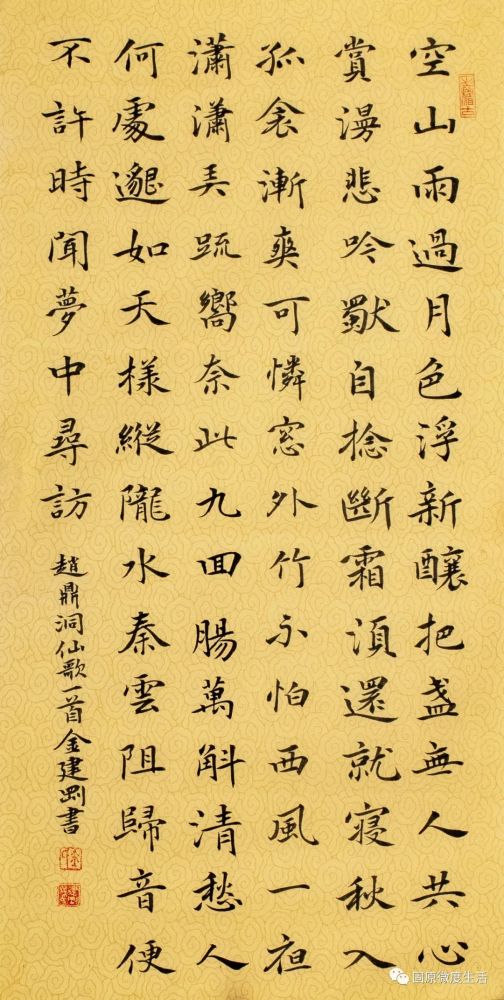 空山雨過月色浮新釀把盞無人共心
賞漫悲吟獨自捻斷霜湏還就寢秋入
孤衾漸爽可憐窓外竹不怕西風一夜
瀟瀟弄疏響奈此九回腸萬斛清愁人
何處邈如天樣縱隴水秦雲阻歸音便
不許時聞夢中尋訪
趙鼎洞仙歌一首金建剛書
固原微度生活